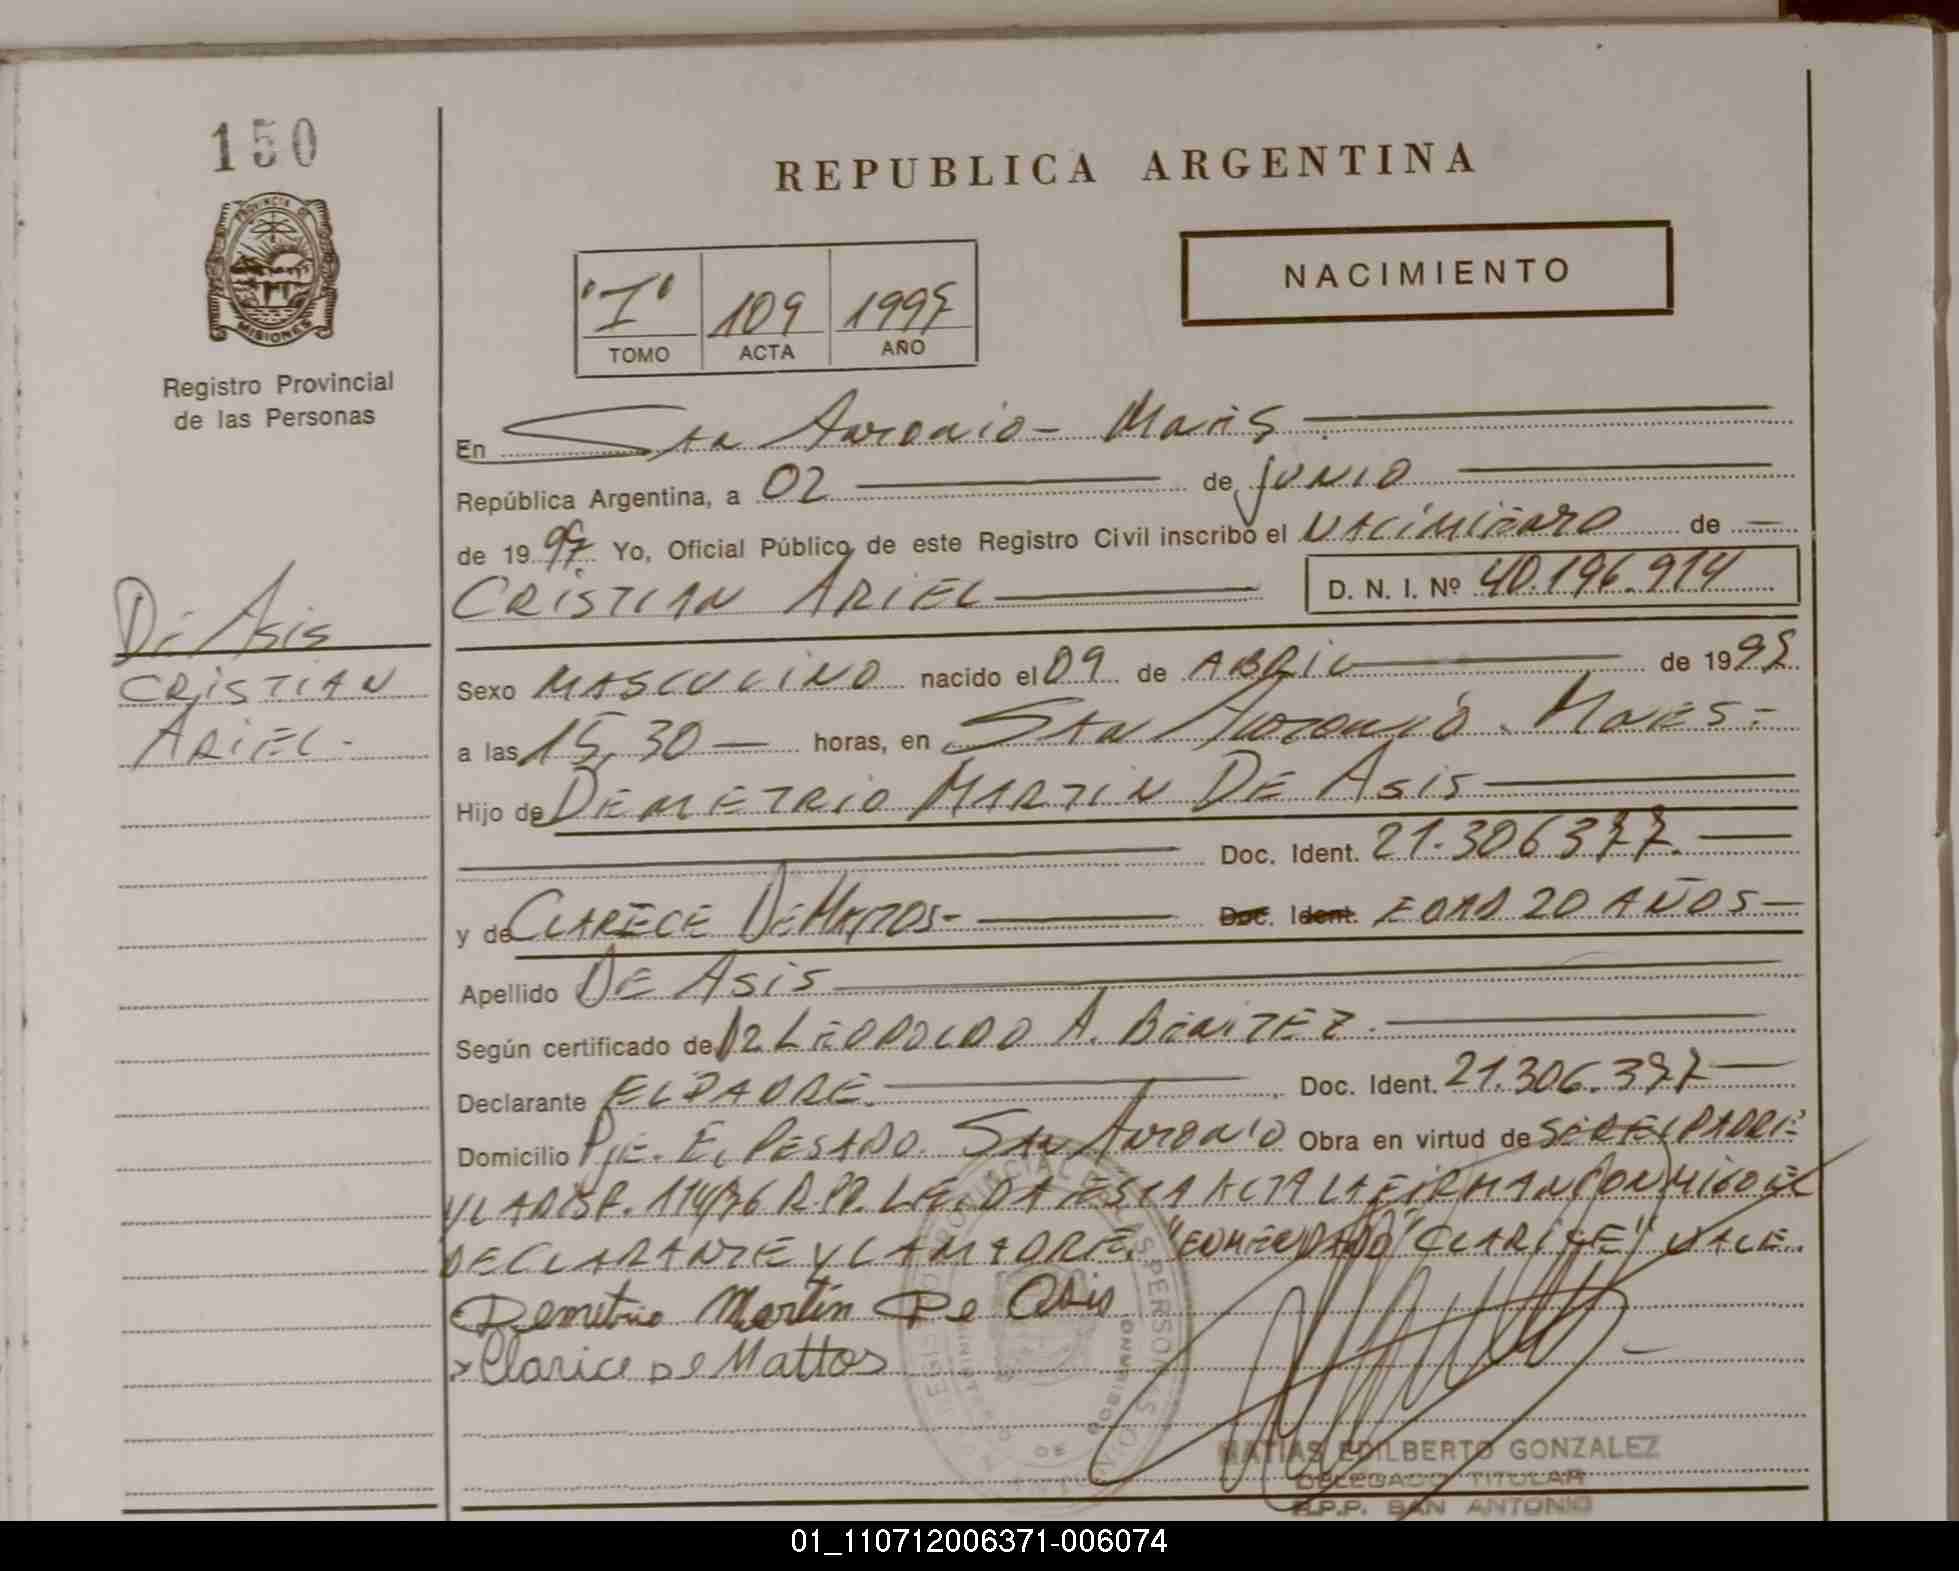 150
PROVINCIA DE
MISIONES
Registro Provincial
de las Personas
De Asis
CRISTIAN
ARIEL.-
REPUBLICA ARGENTINA
NACIMIENTO
"I" 109 1997
TOMO ACTA AÑO
En San Antonio - Mnes
República Argentina, a 02 de junio
de 1997. Yo, Oficial Público de este Registro Civil inscribo el NACIMIENTO de
CRISTIAN ARIEL D. N. I. Nº 40.196.914
Sexo MASCULINO nacido el 09 de ABRIL de 199
a las 15,30 horas, en San Antonio. Mnes-
Hijo de DEMETRIO MARTIN DE ASIS
Doc. Ident. 21.306377.
y de CLARECE DE MATTOS- Doc. Ident. EDAD 20 AÑOS
Apellido DE ASIS
Según certificado de Dr LEOPOLDO A. BENITEZ.
Declarante EL PADRE. Doc. Ident. 21.306.377
Domicilio Pje. EL PESADO. SAN ANTONIO Obra en virtud de SER EL PADRE
Y LA DISP. 114/96 R.P.P. LEIDA ESTA ACTA LA FIRMAN CONMIGO EL
DECLARANTE Y LA MADRE. "ENMENDADO" "CLARICE" VALE.
Demetrio Martin De Asis
Clarice De Mattos
MATIAS EDILBERTO GONZALEZ
DELEGADO TITULAR
R.P.P. SAN ANTONIO
01_110712006371-006074